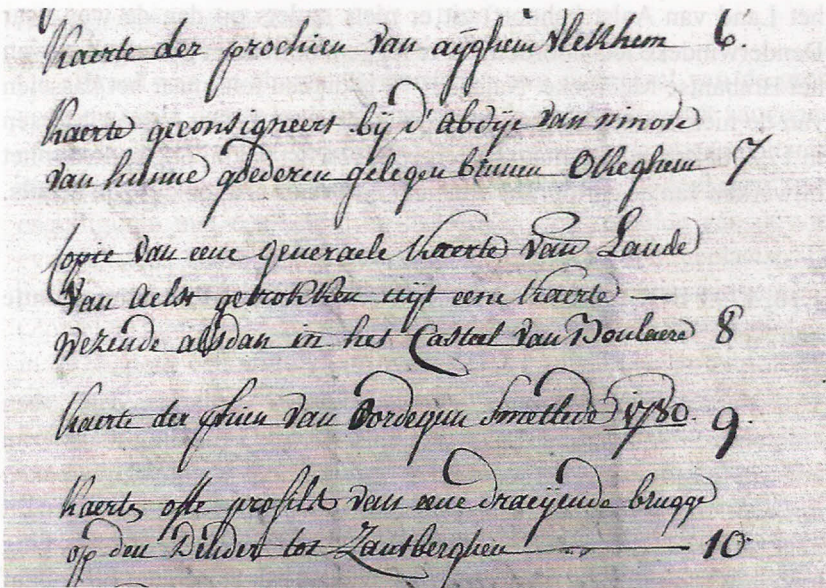 Kaerte der prochien van aijghem vlekhem 6
Kaerte geconsigneert bij d'abdije van ninove
van hunne goederen gelegen binnen Olleghem 7
Copie van eene generaele Kaerte van Lande
van Aelst getrokken uijt eene Kaerte —
Wezende alsdan in het Casteel van Boulaere 8
Kaerte der phien van Bordegem Smetlede 1780. 9.
Kaerte ofte profilt van eene draeijende brugge
op den Dender tot Zantberghen — 10